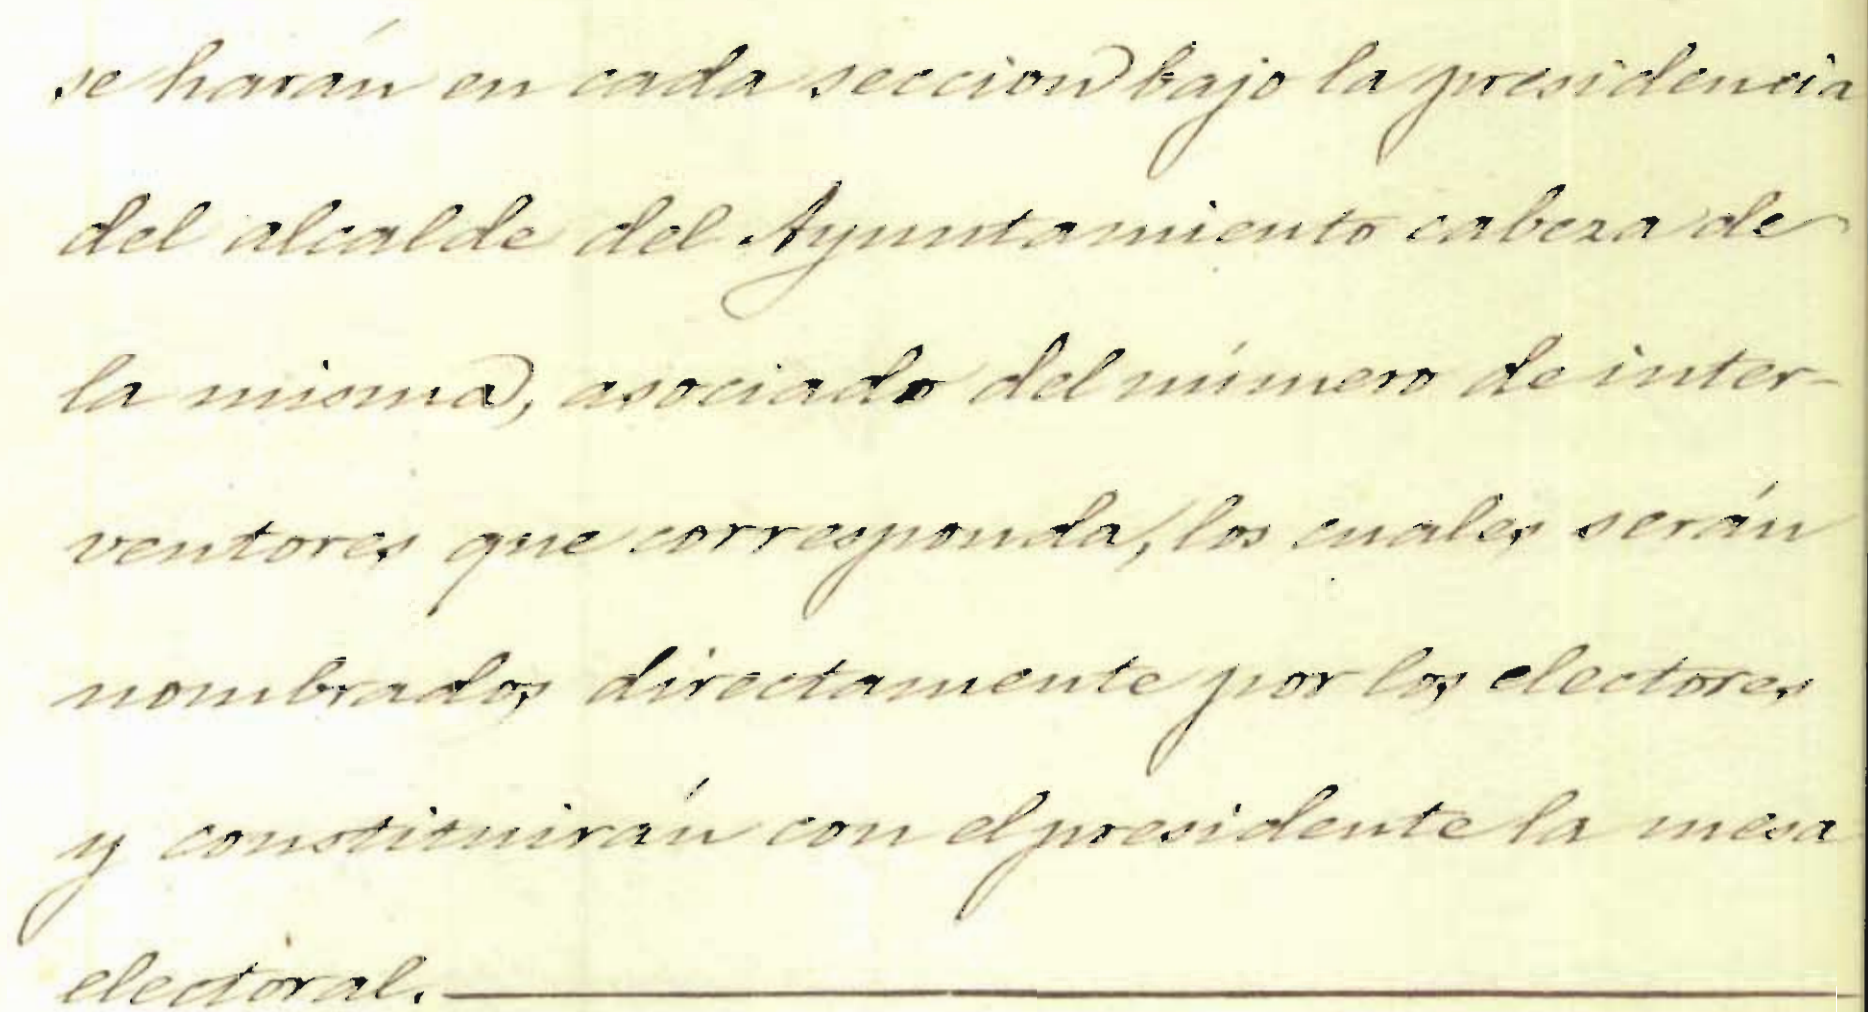 se harán en cada seccion bajo la presidencia
del alcalde del Ayuntamiento cabeza de
la misma, asociado del número de inter-
ventores que corresponda, los cuales serán
nombrados directamente por los electores
y constituirán con el presidente la mesa
electoral.